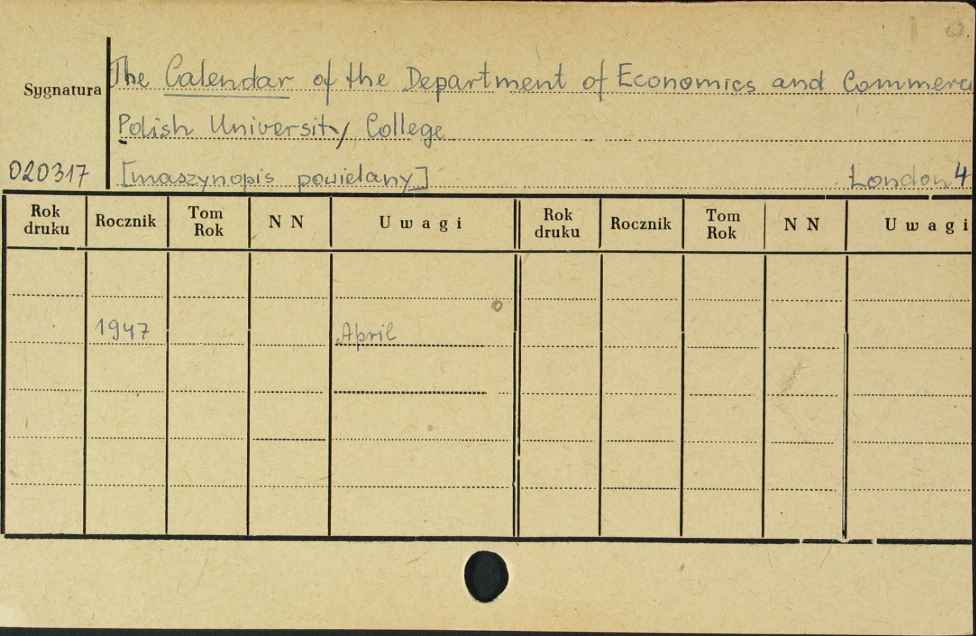 The Calendar of the Department of Economics and Commerc
Sygnatura
Polish University College
020317 [maszynopis powielany] London 4
Rok druku Rocznik Tom Rok N N Uwagi Rok druku Rocznik Tom Rok N N Uwagi
1947 April